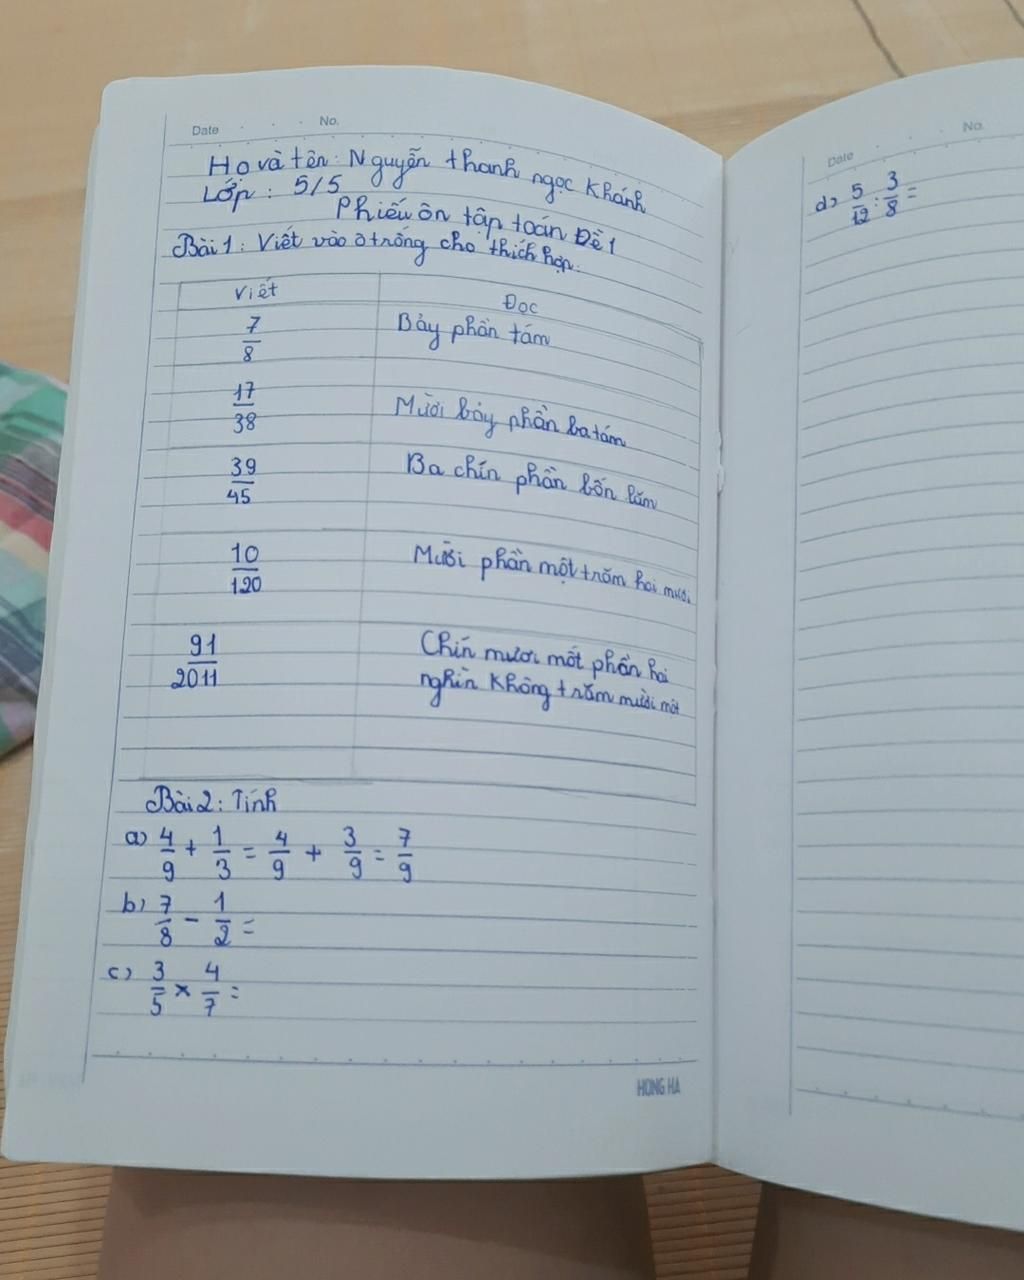 Date No.
Họ và tên: Nguyễn thanh ngọc Khánh
Lớp: 5/5
Phiếu ôn tập toán Đề 1
Bài 1: Viết vào ô trống cho thích hợp:
Viết Đọc
7/8 Bảy phần tám
17/38 Mười bảy phần ba tám
39/45 Ba chín phần bốn lăm
10/120 Mười phần một trăm hai mươi
91/2011 Chín mươi mốt phần hai
nghìn không trăm mười một
Bài 2: Tính
a) 4/9 + 1/3 = 4/9 + 3/9 = 7/9
b) 7/8 - 1/2 =
c) 3/5 × 4/7 =
HONG HA
Date No.
d) 5/12 : 3/8 =